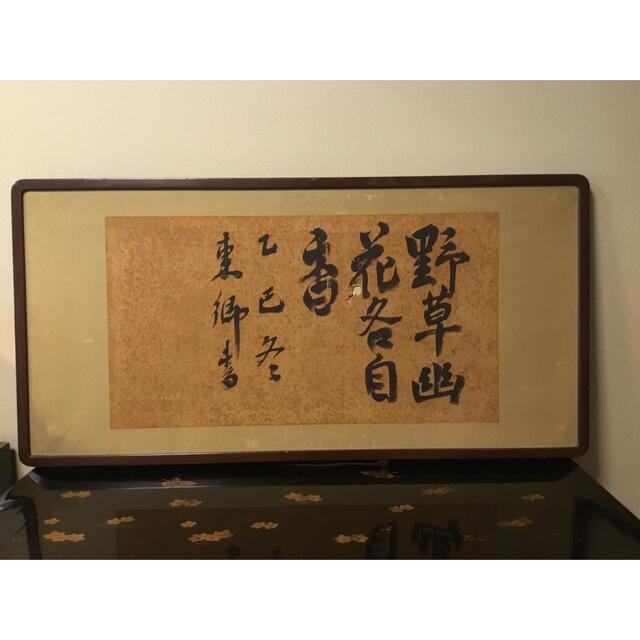 野草幽
花各自
香
乙巳冬
東郷書